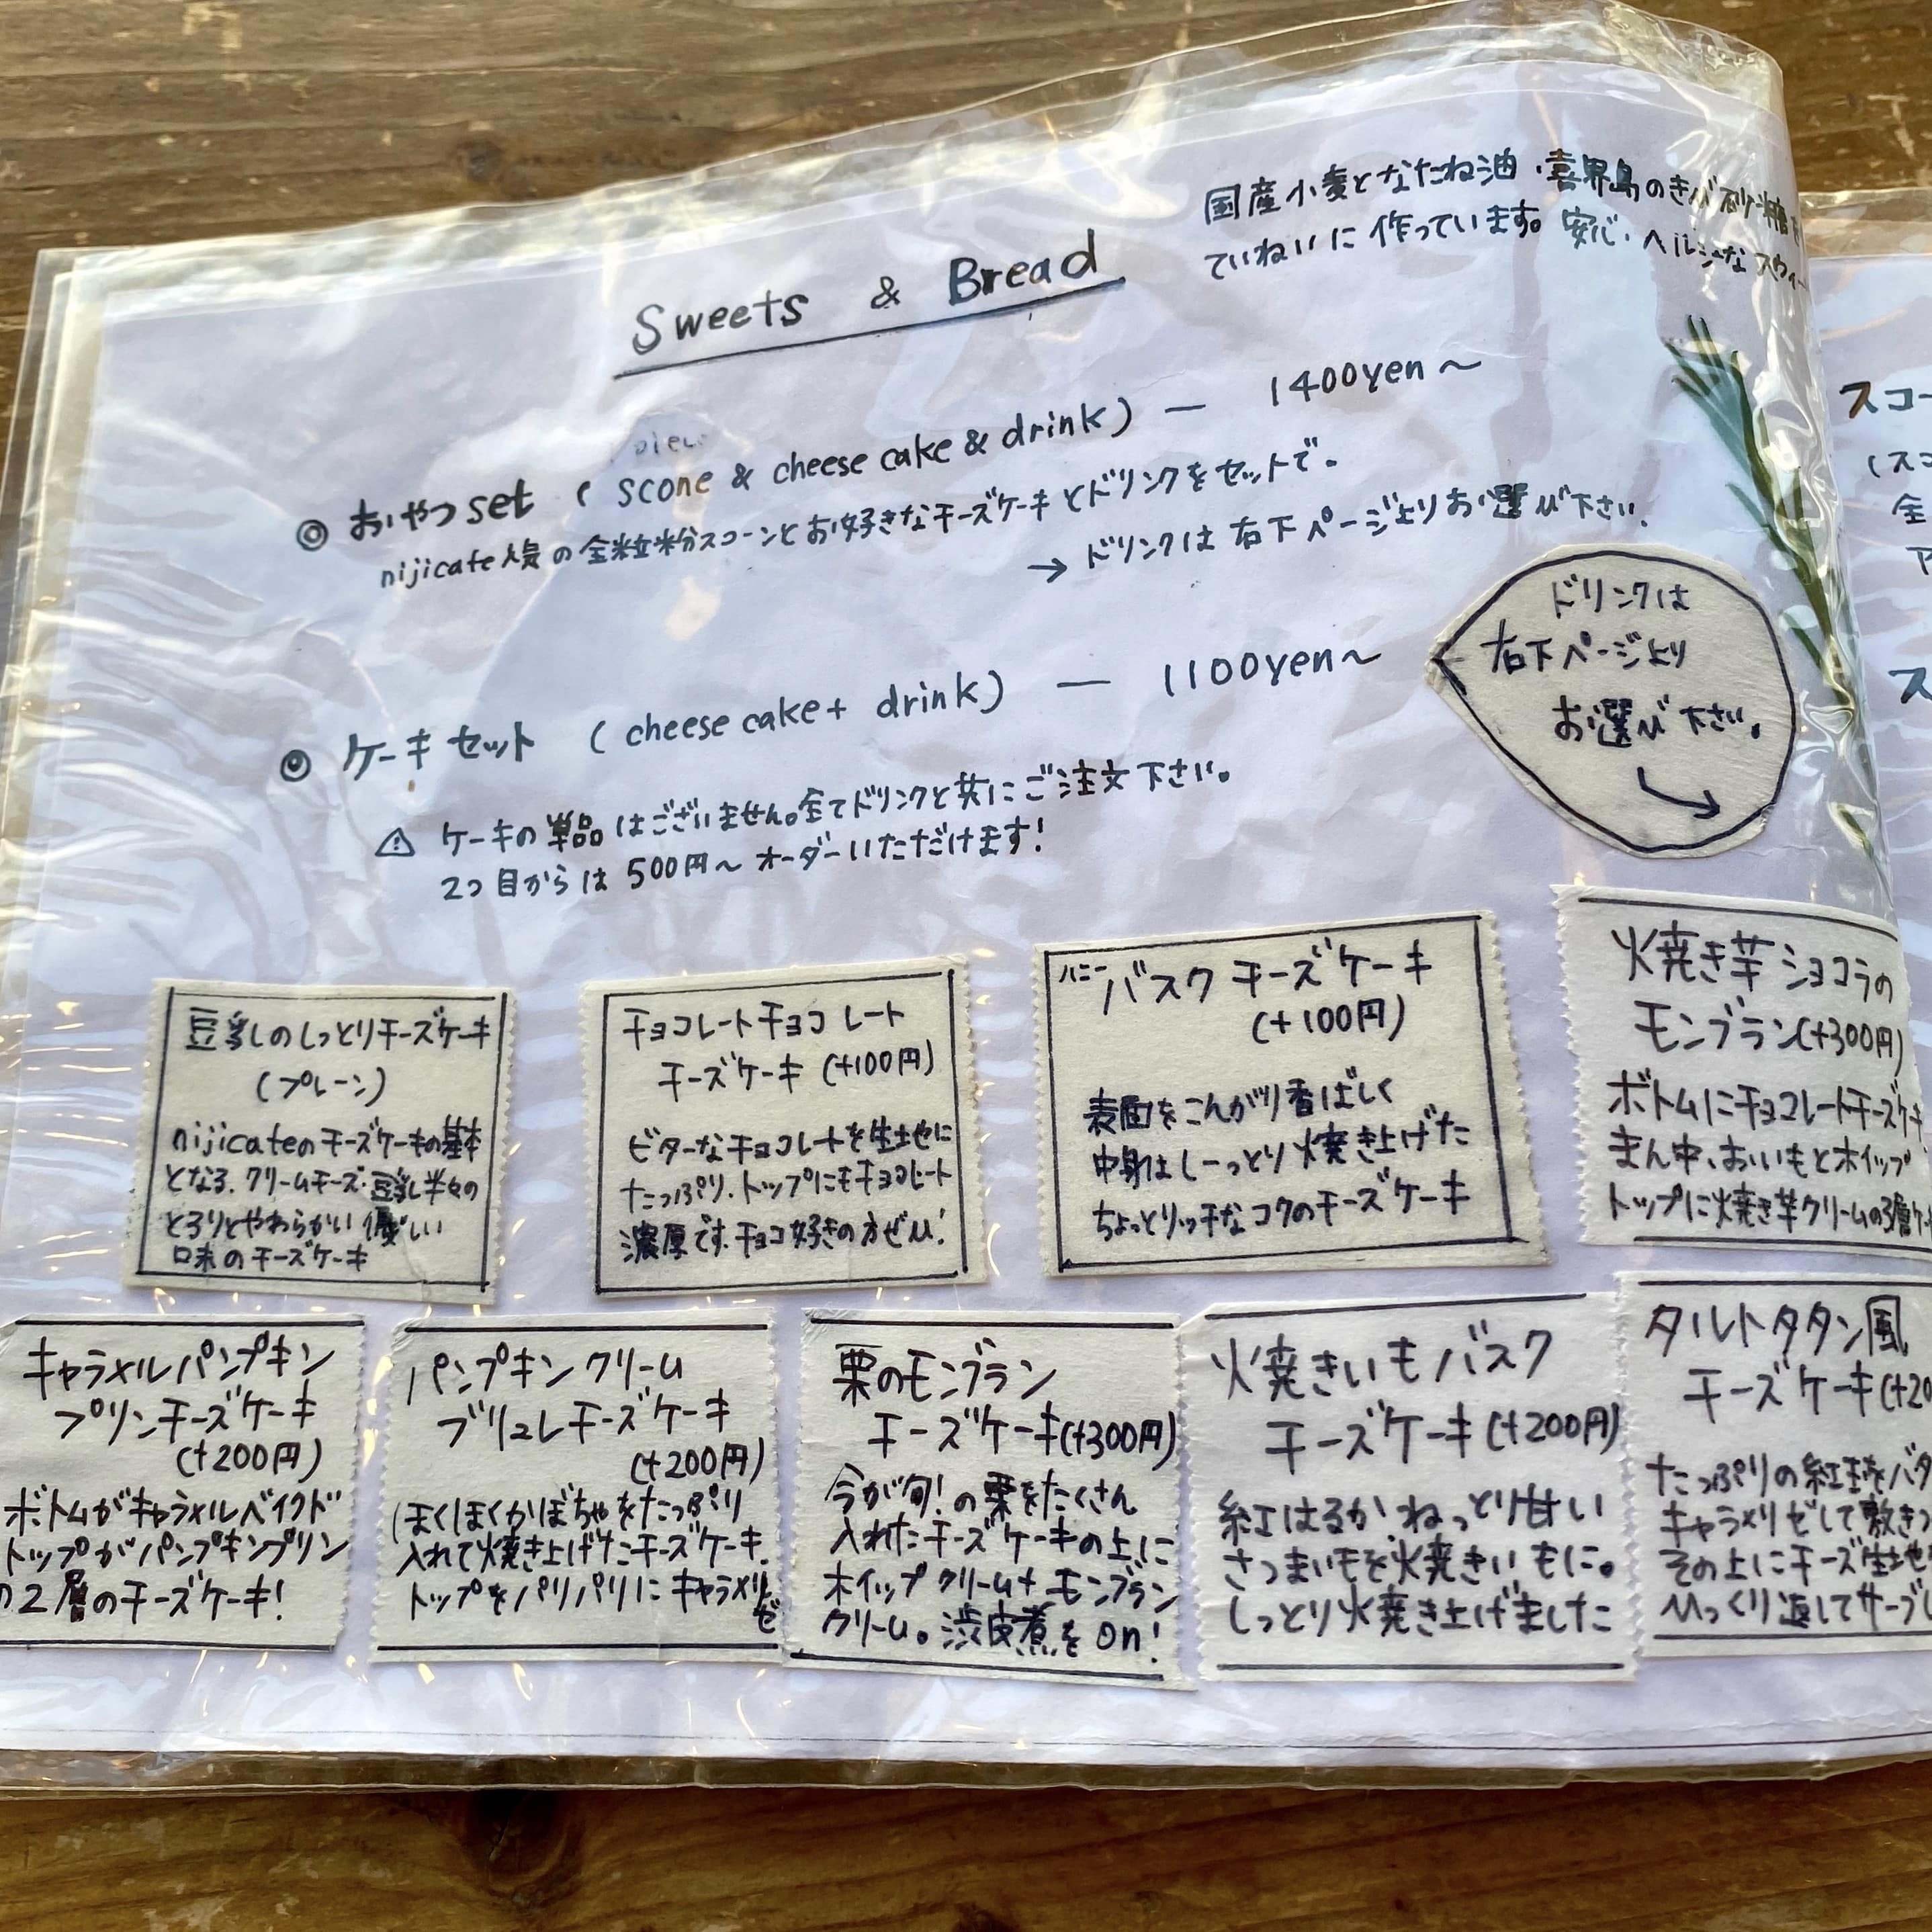 Sweets & Bread
国産小麦となたね油・喜界島のきび砂糖を
ていねいに作っています。安心・ヘルシーなスウィー
◎ おやつset ( scone & cheese cake & drink ) — 1400yen〜
nijicafe人気の全粒粉スコーンとお好きなチーズケーキとドリンクをセットで。
→ ドリンクは右下ページよりお選び下さい。
◎ ケーキセット ( cheese cake + drink ) — 1100yen〜
⚠ ケーキの単品はございません。全てドリンクと共にご注文下さい。
2つ目からは500円〜オーダーいただけます!
ドリンクは
右下ページより
お選び下さい。
豆乳のしっとりチーズケーキ
(プレーン)
nijicafeのチーズケーキの基本
となる、クリームチーズ・豆乳半々の
とろりとやわらかい優しい
口末のチーズケーキ
チョコレートチョコレート
チーズケーキ (+100円)
ビターなチョコレートを生地に
たっぷり、トップにもチョコレート
濃厚です。チョコ好きの方ぜひ!
ハニーバスクチーズケーキ
(+100円)
表面をこんがり香ばしく
中身はしーっとり焼き上げた
ちょっとリッチなコクのチーズケーキ
焼き芋ショコラの
モンブラン(+300円)
ボトムにチョコレートチーズケー
まん中、おいもとホイップ
トップに焼き芋クリームの3層ケー
キャラメルパンプキン
プリンチーズケーキ
(+200円)
ボトムがキャラメルベイクド
トップがパンプキンプリン
の2層のチーズケーキ!
パンプキンクリーム
ブリュレチーズケーキ
(+200円)
ほくほくかぼちゃをたっぷり
入れて焼き上げたチーズケーキ。
トップをパリパリにキャラメリ
ゼ
栗のモンブラン
チーズケーキ(+300円)
今が旬!の栗をたくさん
入れたチーズケーキの上に
ホイップクリーム+モンブラン
クリーム。渋皮煮をon!
焼きいもバスク
チーズケーキ(+200円)
紅はるか、ねっとり甘い
さつまいもを焼きいもに。
しっとり焼き上げました
タルトタタン風
チーズケーキ(+20
たっぷりの紅玉をバタ
キャラメリゼして敷きつ
その上にチーズ生地を
ひっくり返してサーブし
スコー
(スコ
全
ス